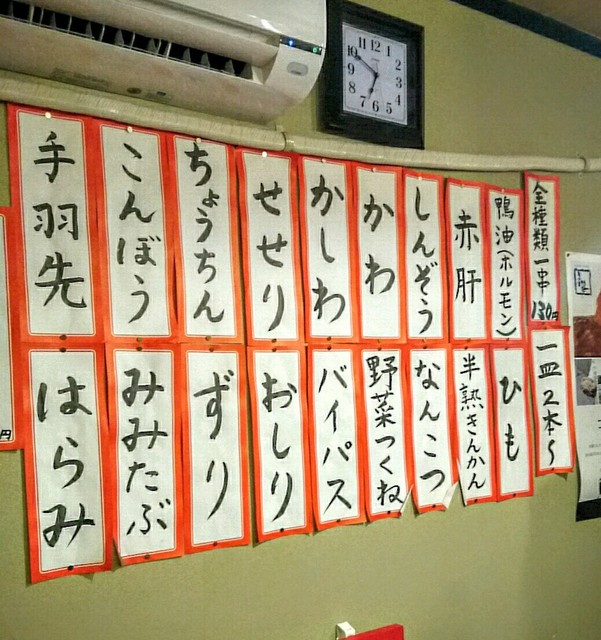 全種類一串
130円
鴨油(ホルモン)
赤肝
しんぞう
かわ
かしわ
せせり
ちょうちん
こんぼう
手羽先
一皿2本〜
ひも
半熟きんかん
なんこつ
野菜つくね
バイパス
おしり
ずり
みみたぶ
はらみ
円
11 12 1
10 2
9 3
8 4
7 6 5